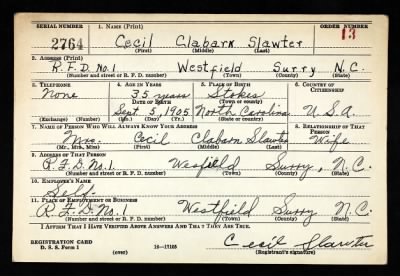 SERIAL NUMBER 1. NAME (Print) ORDER NUMBER
2764 Cecil Clabarn Slawter 13
(First) (Middle) (Last)
2. ADDRESS (Print)
R.F.D. No. 1 Westfield Surry N.C.
(Number and street or R. F. D. number) (Town) (County) (State)
3. TELEPHONE 4. AGE IN YEARS 5. PLACE OF BIRTH 6. COUNTRY OF CITIZENSHIP
None 35 years Stokes
DATE OF BIRTH (Town or county)
Sept. 5, 1905 North Carolina U.S.A.
(Exchange) (Number) (Mo.) (Day) (Yr.) (State or country)
7. NAME OF PERSON WHO WILL ALWAYS KNOW YOUR ADDRESS 8. RELATIONSHIP OF THAT PERSON
Mrs. Cecil Clabarn Slawter Wife
(Mr., Mrs., Miss) (First) (Middle) (Last)
9. ADDRESS OF THAT PERSON
R.F.D. No. 1 Wesfield Surry, N.C.
(Number and street or R. F. D. number) (Town) (County) (State)
10. EMPLOYER'S NAME
Self.
11. PLACE OF EMPLOYMENT OR BUSINESS
R.F.D. No. 1 Westfield Surry N.C.
(Number and street or R. F. D. number) (Town) (County) (State)
I AFFIRM THAT I HAVE VERIFIED ABOVE ANSWERS AND THAT THEY ARE TRUE.
REGISTRATION CARD
D. S. S. Form 1 16—17105 Cecil Slawter
(over) (Registrant's signature)